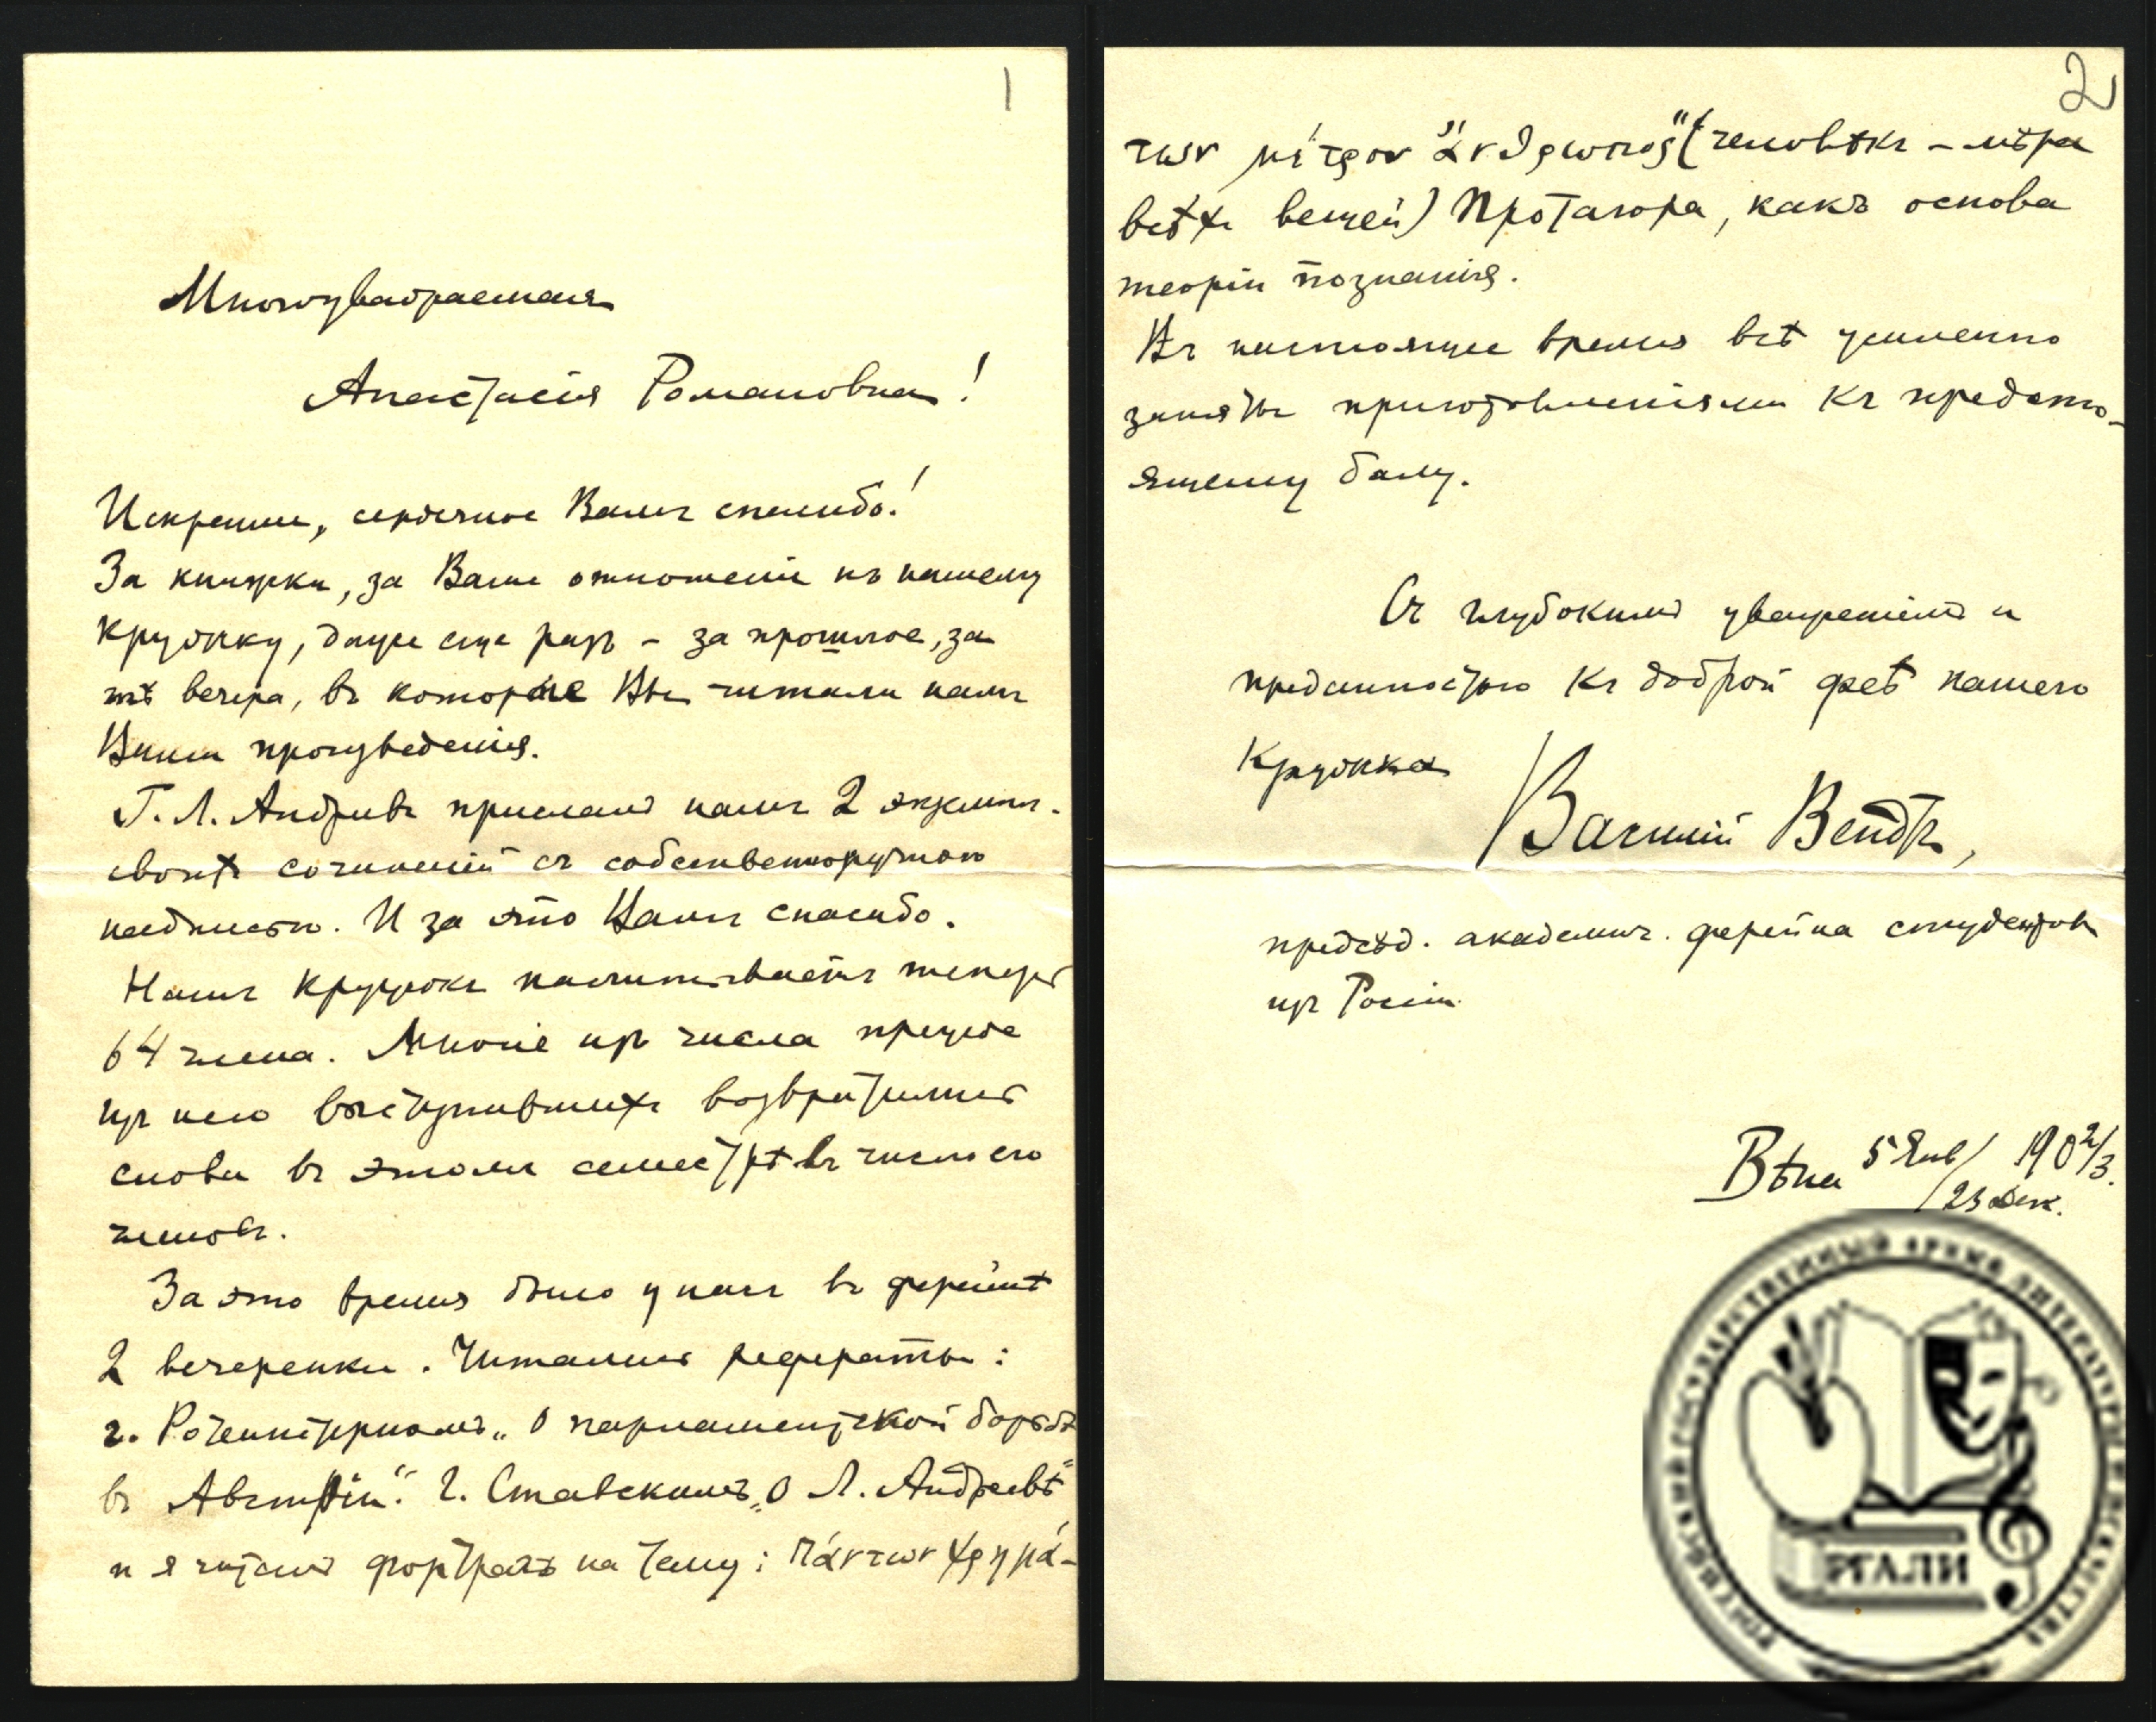 1
Многоуважаемая
Анастасія Романовна!
Искреннее, сердечное Вамъ спасибо!
За книжки, за Ваше отношеніе къ нашему
кружку, даже еще разъ – за прошлое, за
тѣ вечера, въ которые Вы читали намъ
Ваши произведенія.
Г. Л. Андреевъ прислалъ намъ 2 экземпл.
своихъ сочиненій съ собственноручною
надписью. И за это Вамъ спасибо.
Нашъ кружокъ насчитываетъ теперь
64 члена. Многіе изъ числа прежде
изъ него выступившихъ возвратились
снова въ этомъ семестрѣ въ число его
членовъ.
За это время было у насъ въ ферейнѣ
2 вечеринки. Читались рефераты:
г. „О парламентской борьбѣ
въ Австріи“. г. Ставскимъ „О Л. Андреевѣ“
и я читалъ на тему: πάντων χρημά-
2
των μέτρον ἄνθρωπος“ (человѣкъ – мѣра
всѣхъ вещей) Протагора, какъ основа
теоріи познанія.
Въ настоящее время всѣ усиленно
заняты приготовленіями къ предсто-
ящему балу.
Съ глубокимъ уваженіемъ и
преданностью къ доброй феѣ нашего
Кружка
Василій Вендъ,
предсѣд. академич. ферейна студентовъ
изъ Россіи
Вѣна 5 Янв/23 Дек. 1902/3.
РОССИЙСКИЙ ГОСУДАРСТВЕННЫЙ АРХИВ ЛИТЕРАТУРЫ И ИСКУССТВА
РГАЛИ